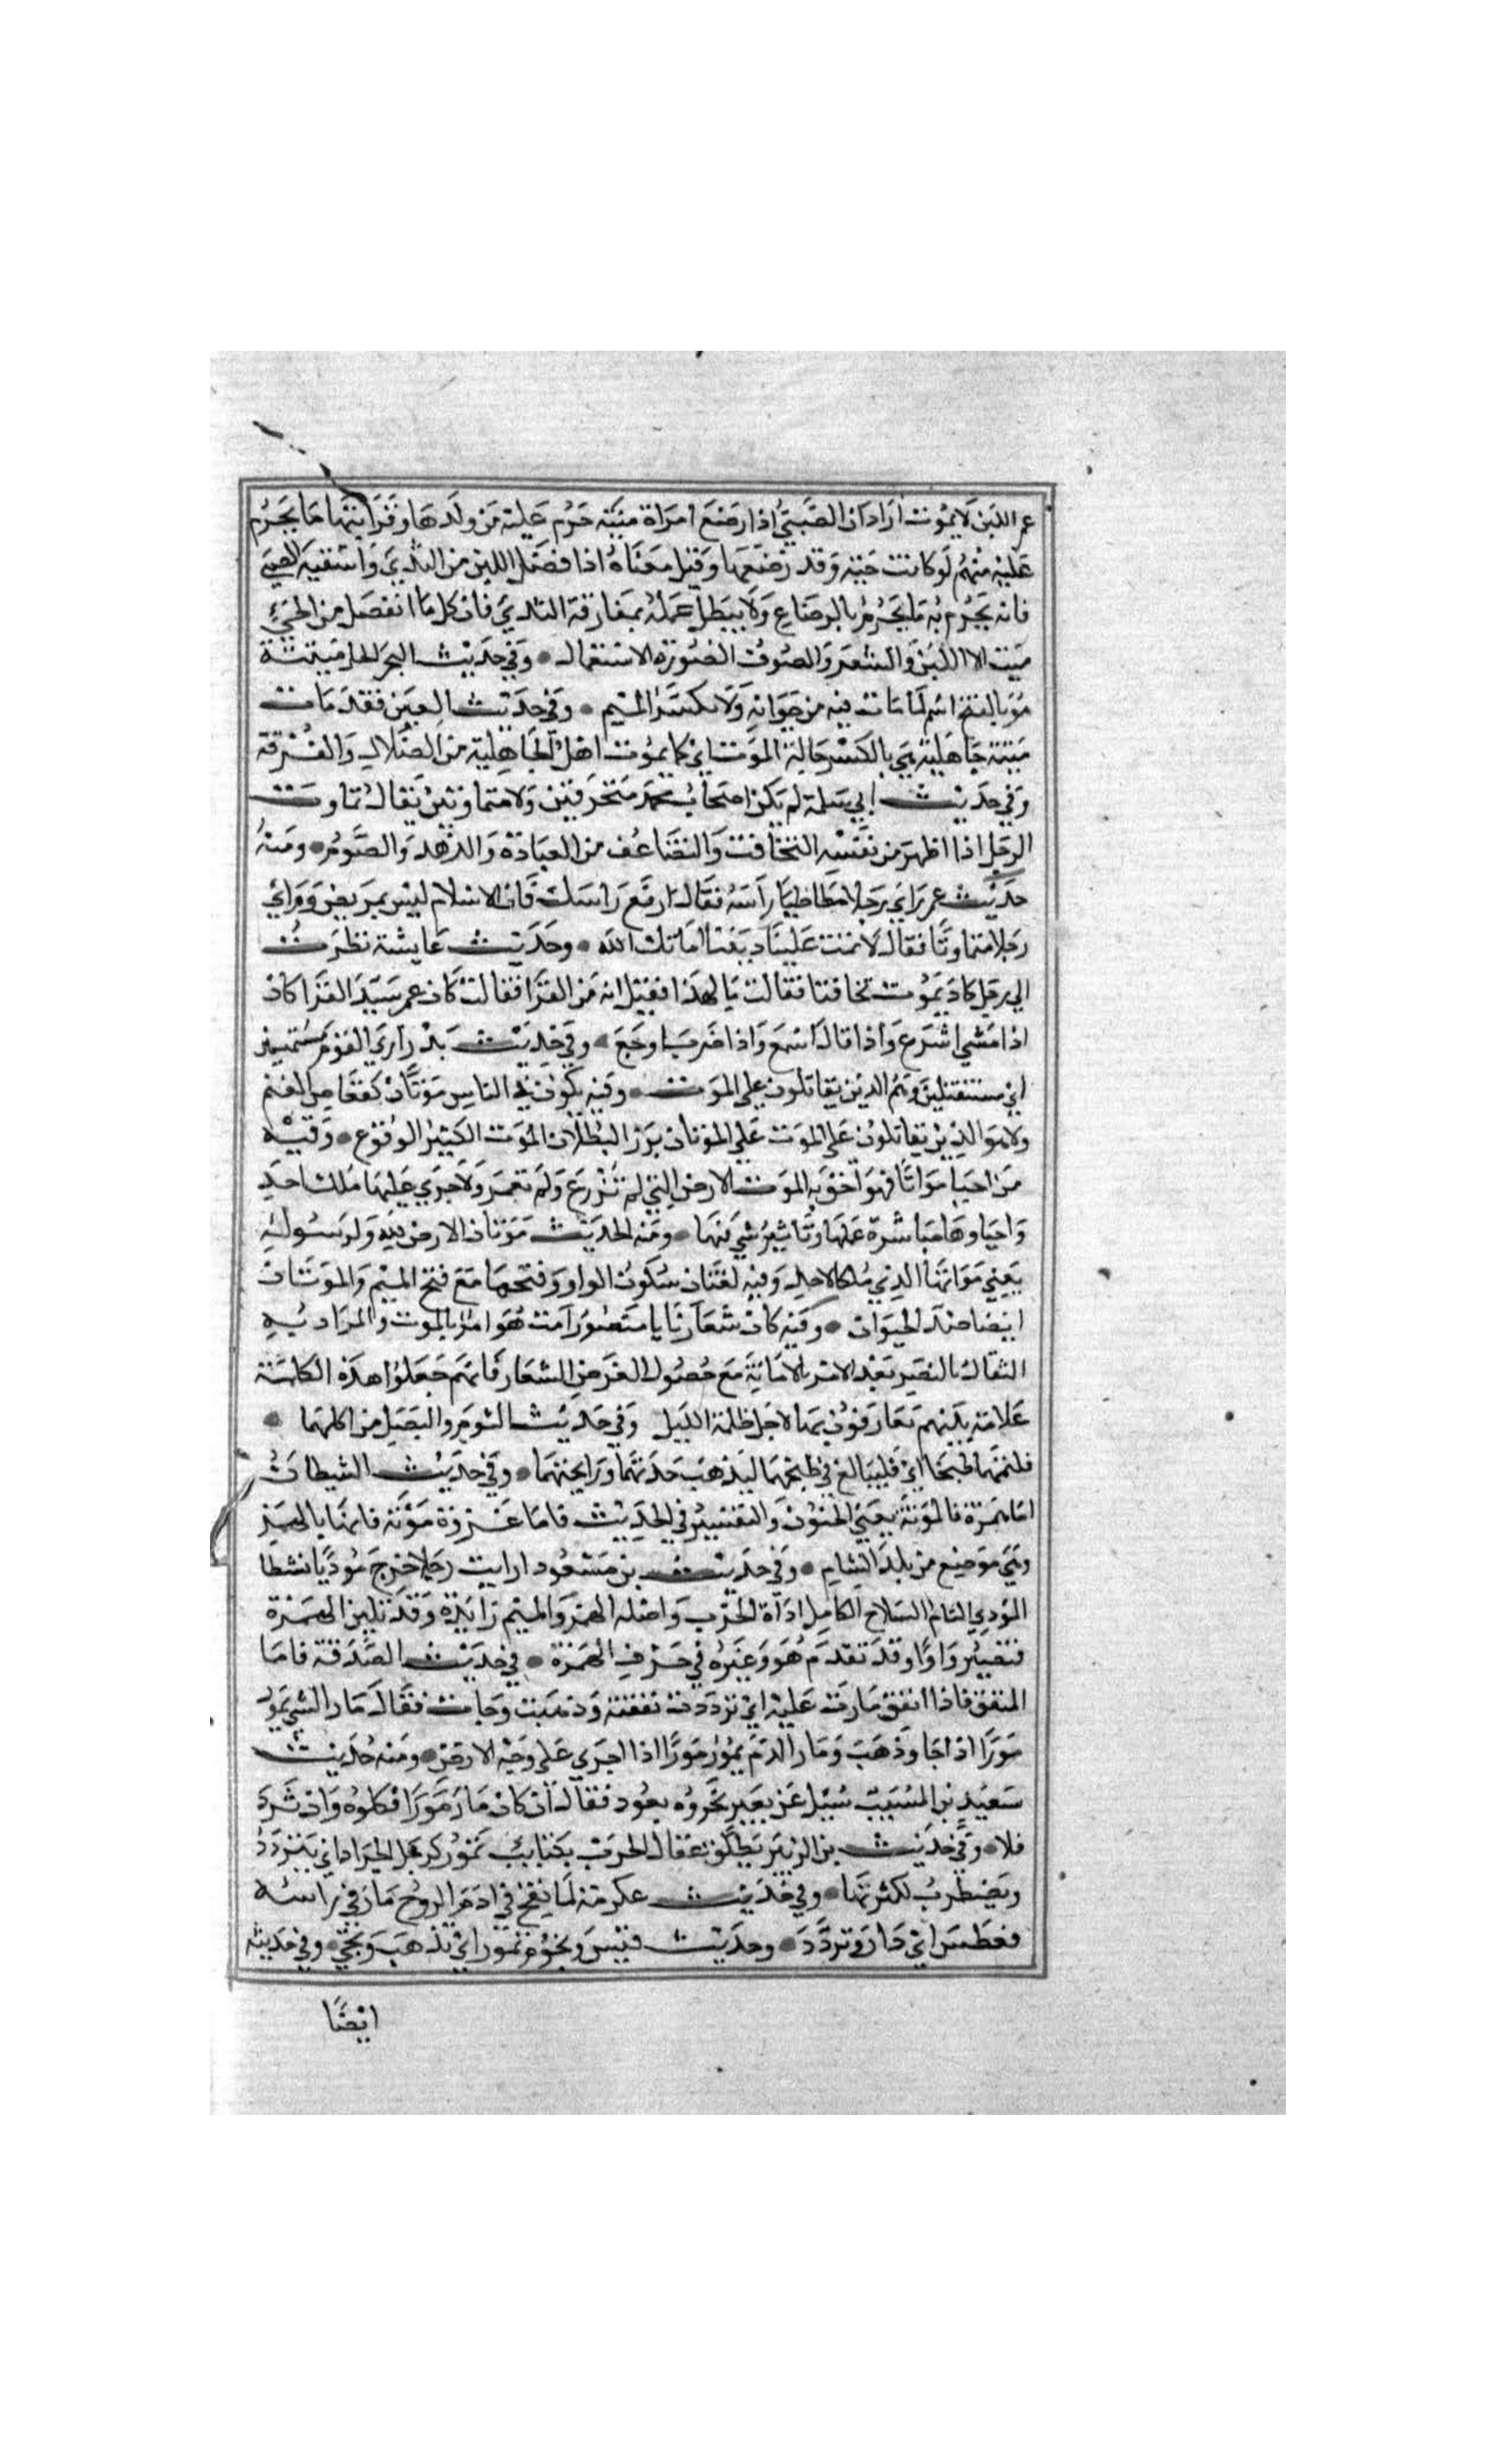 عمر اللبن لا يموت اراد ان الصبي اذا رضع امراة ميتة حرم عليه من ولدها وقرابتها ما يحرم
عليه منهم لو كانت حية وقد رضعها وقيل معناه اذا فصل اللبن من الثدي واسقيه الصبي
فانه يحرم به ما يحرم بالرضاع ولا يبطل عمله بمفارقة الثدي فان كل ما انفصل من الحي
ميت الا اللبن والشعر والصوف لضرورة الاستعمال وفي حديث البحر الحل ميتته
هو بالفتح اسم لما مات فيه من حيوانه ولا تكسر الميم وفي حديث الفتن فقد مات
ميتة جاهلية هي بالكسر حالة الموت اي كما يموت اهل الجاهلية من الضلال والفرقة
وفي حديث ابي سلمة لم يكن اصحاب محمد متحزقين ولا متماوتين يقال تماوت
الرجل اذا اظهر من نفسه التخافت والتضاعف من العبادة والزهد والصوم ومنه
حديث عمر راي رجلا مطاطيا راسه فقال ارفع راسك فان الاسلام ليس بمريض وراي
رجلا متماوتا فقال لا تمت علينا ديننا اماتك الله وحديث عايشة نظرت
الي رجل كاد يموت تخافتا فقالت ما لهذا فقيل انه من القرا فقالت كان عمر سيد القرا كان
اذا مشي اسرع واذا قال اسمع واذا ضرب اوجع وفي حديث بدر اري القوم مستميتين
اي مستقتلين وهم الذين يقاتلون علي الموت وفيه يكون في الناس موتان كقعاص الغنم
ولا هو الذين يقاتلون علي الموت علي الموتان بوزن البطلان الموت الكثير الوقوع وفيه
من احيا مواتا فهو احق به الموت الارض التي لم تزرع ولم تعمر ولا جري عليها ملك احد
واحياوها مباشرة عملها وتاثير شي فيها ومنه الحديث موتان الارض لله ولرسوله
يعني مواتها الذي ملكا لاحد وفيه لغتان سكون الواو وفتحها مع فتح الميم والموتان
ايضا ضد الحيوان وفيه كان شعارنا يا منصور امت هو امر بالموت والمراد به
التفاك بالنصر بعد الامر بالاماتة مع حصول الغرض الشعار فانهم جعلوا هذه الكلمة
علامة بينهم يتعارفون بها لاجل ظلمة الليل وفي حديث الثوم والبصل من اكلهما
فليمتهما طبخا اي فليبالغ في طبخهما ليذهب حدتهما ورايحتهما وفي حديث الشيطان
اما همزه فالموتة يعني الجنون والتفسير في الحديث فاما غزوة موتة فانها بالهمز
وهي موضع من بلد الشام وفي حديث بن مسعود ارايت رجلا خرج موديا نشطا
المودي التام السلاح الكامل اداة الحرب واصله الهمز والميم زايدة وقد تلين الهمزة
فتصير واوا وقد تقدم هو وغيره في حرف الهمزة في حديث الصدقة فاما
المنفق فاذا انفق مارت عليه اي ترددت نفقته وذهبت وجات فقال مار الشي يمور
مورا اذا جا وذهب ومار الدم يمور مورا اذا اجري علي وجه الارض ومنه حديث
سعيد بن المسيب سيل عن بعير نحروه بعود فقال ان كان مار مورا فكلوه وان ثرد
فلا وفي حديث بن الزبير يطلق عقال الحرب بكتايب تمور كرجل الجراد اي يتردد
ويضطرب لكثرتها وفي حديث عكرمة لما نفخ في ادم الروح مار في راسه
فعطس اي دار وتردد وحديث قيس ونجوم تمور اي تذهب وتجي وفي حديثه
ايضا